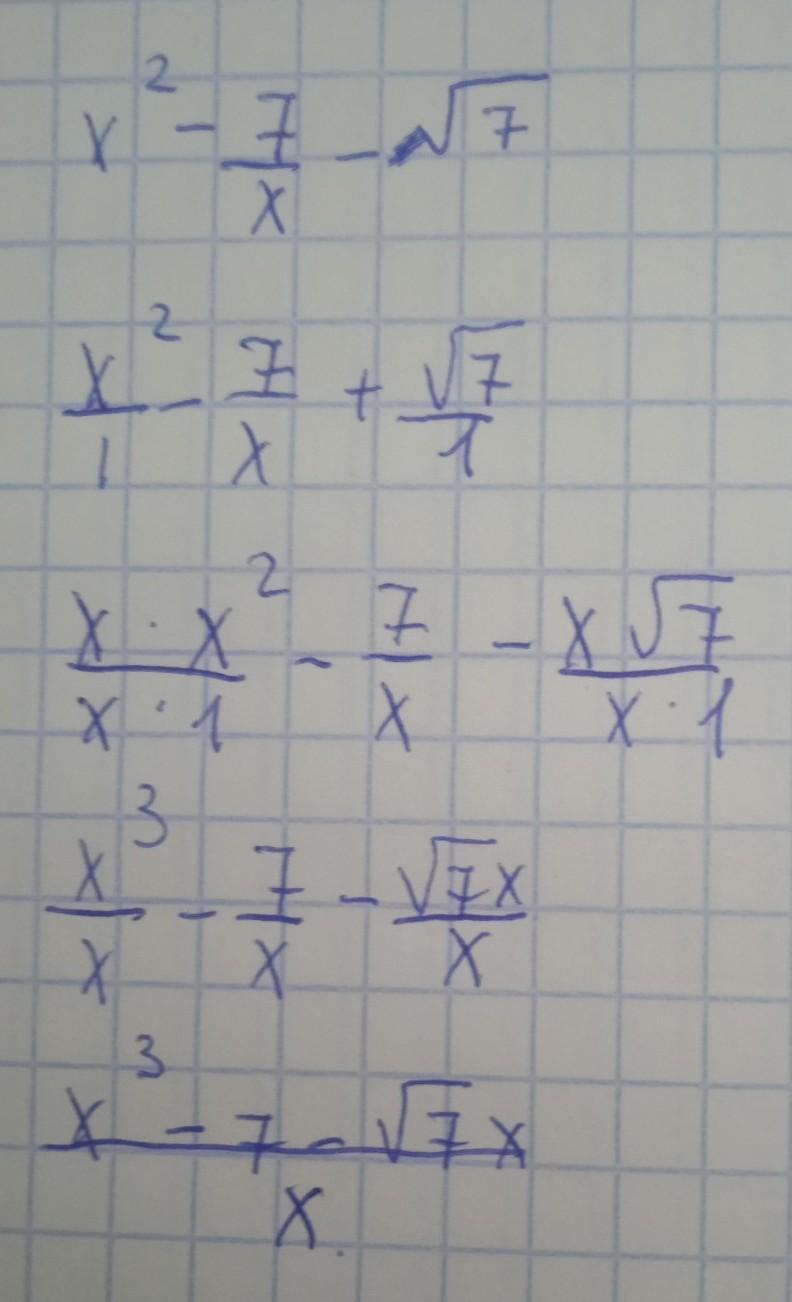 x² - 7/x - √7
x²/1 - 7/x + √7/1
x · x²/x · 1 - 7/x - x√7/x · 1
x³/x - 7/x - √7x/x
x³ - 7 - √7x/x